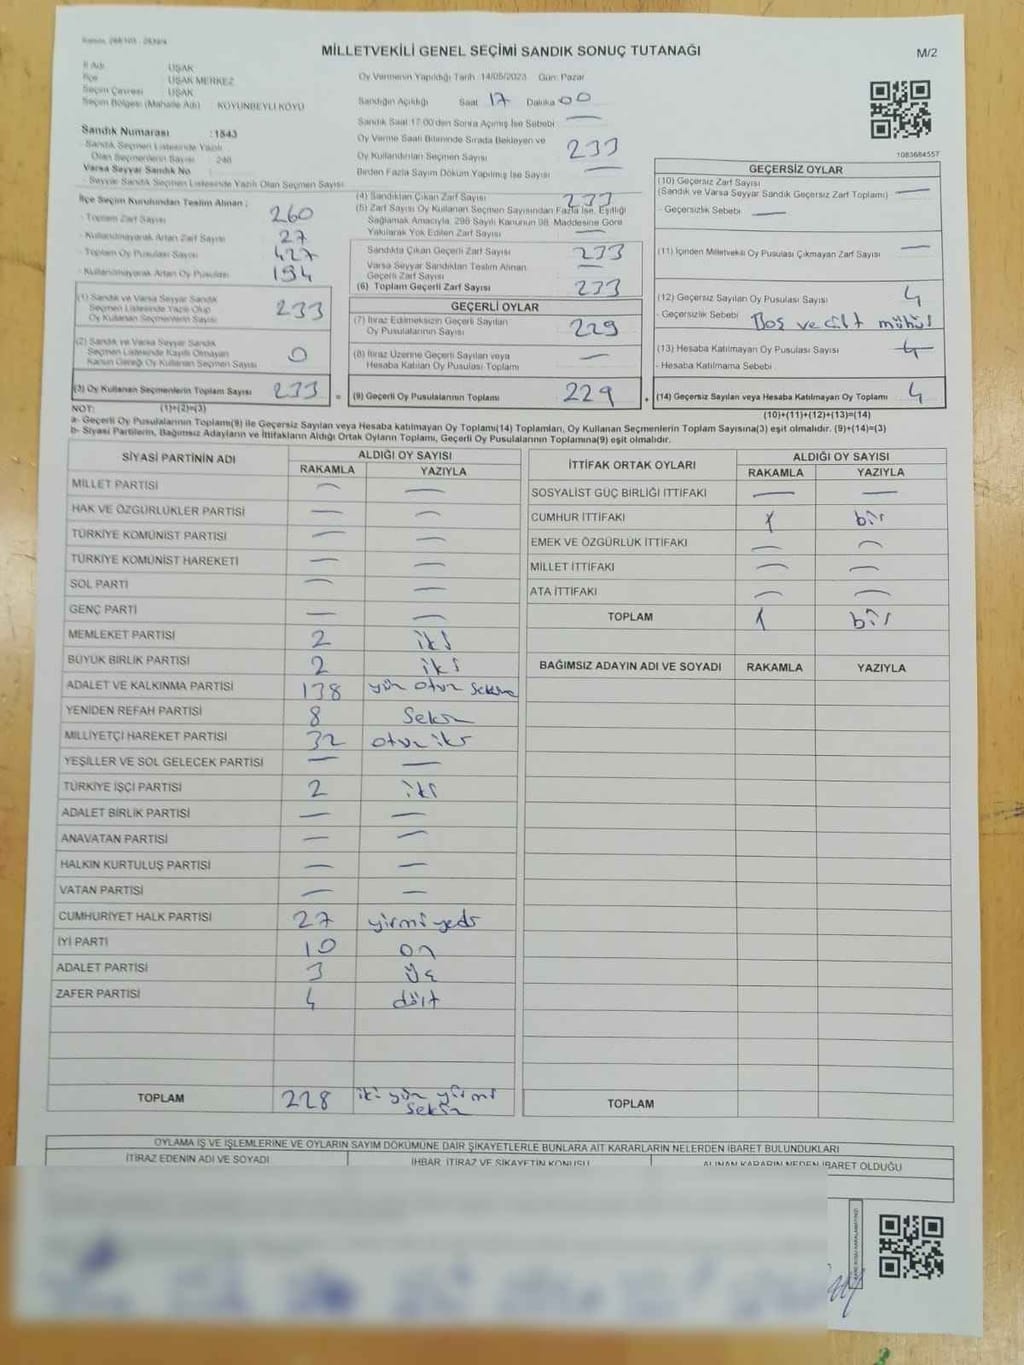 MİLLETVEKİLİ GENEL SEÇİMİ SANDIK SONUÇ TUTANAĞI
M/2
İl Adı UŞAK
İlçe UŞAK MERKEZ
Seçim Çevresi UŞAK
Seçim Bölgesi (Mahalle Adı) : KOYUNBEYLİ KÖYÜ
Sandık Numarası :1843
Sandık Seçmen Listesinde Yazılı
Olan Seçmenlerin Sayısı
Varsa Seyyar Sandık No
Seyyar Sandık Seçmen Listesinde Yazılı Olan Seçmen Sayısı
Oy Vermenin Yapıldığı Tarih :14/05/2023 Gün: Pazar
Sandığın Açıldığı Saat 17 Dakika 00
Sandık Saat 17:00'den Sonra Açılmış İse Sebebi —
Oy Verme Saati Bitiminde Sırada Bekleyen ve
Oy Kullandırılan Seçmen Sayısı 233
Birden Fazla Sayım Döküm Yapılmış İse Sayısı —
1083684557
İlçe Seçim Kurulundan Teslim Alınan ;
- Toplam Zarf Sayısı 260
- Kullanılmayarak Artan Zarf Sayısı 27
- Toplam Oy Pusulası Sayısı 427
- Kullanılmayarak Artan Oy Pusulası 194
(1) Sandık ve Varsa Seyyar Sandık
Seçmen Listesinde Yazılı Olup
Oy Kullanan Seçmenlerin Sayısı 233
(2) Sandık ve Varsa Seyyar Sandık
Seçmen Listesinde Kayıtlı Olmayan
Kanun Gereği Oy Kullanan Seçmen Sayısı 0
(3) Oy Kullanan Seçmenlerin Toplam Sayısı 233 =
(4) Sandıktan Çıkan Zarf Sayısı 233
(5) Zarf Sayısı Oy Kullanan Seçmen Sayısından Fazla İse, Eşitliği
Sağlamak Amacıyla, 298 Sayılı Kanunun 98. Maddesine Göre
Yakılarak Yok Edilen Zarf Sayısı —
Sandıkta Çıkan Geçerli Zarf Sayısı 233
Varsa Seyyar Sandıktan Teslim Alınan
Geçerli Zarf Sayısı —
(6) Toplam Geçerli Zarf Sayısı 233
GEÇERLİ OYLAR
(7) İtiraz Edilmeksizin Geçerli Sayılan
Oy Pusulalarının Sayısı 229
(8) İtiraz Üzerine Geçerli Sayılan veya
Hesaba Katılan Oy Pusulası Toplamı —
(9) Geçerli Oy Pusulalarının Toplamı 229 +
GEÇERSİZ OYLAR
(10) Geçersiz Zarf Sayısı
(Sandık ve Varsa Seyyar Sandık Geçersiz Zarf Toplamı) —
- Geçersizlik Sebebi —
(11) İçinden Milletvekili Oy Pusulası Çıkmayan Zarf Sayısı —
(12) Geçersiz Sayılan Oy Pusulası Sayısı 4
- Geçersizlik Sebebi Boş ve çift mühür
(13) Hesaba Katılmayan Oy Pusulası Sayısı
- Hesaba Katılmama Sebebi
(14) Geçersiz Sayılan veya Hesaba Katılmayan Oy Toplamı 4
NOT: (1)+(2)=(3)
(10)+(11)+(12)+(13)=(14)
a- Geçerli Oy Pusulalarının Toplamı(9) ile Geçersiz Sayılan veya Hesaba katılmayan Oy Toplamı(14) Toplamları, Oy Kullanan Seçmenlerin Toplam Sayısına(3) eşit olmalıdır. (9)+(14)=(3)
b- Siyasi Partilerin, Bağımsız Adayların ve İttifakların Aldığı Ortak Oyların Toplamı, Geçerli Oy Pusulalarının Toplamına(9) eşit olmalıdır.
SİYASİ PARTİNİN ADI ALDIĞI OY SAYISI
RAKAMLA YAZIYLA
MİLLET PARTİSİ — —
HAK VE ÖZGÜRLÜKLER PARTİSİ — —
TÜRKİYE KOMÜNİST PARTİSİ — —
TÜRKİYE KOMÜNİST HAREKETİ — —
SOL PARTİ — —
GENÇ PARTİ — —
MEMLEKET PARTİSİ 2 iki
BÜYÜK BİRLİK PARTİSİ 2 iki
ADALET VE KALKINMA PARTİSİ 138 yüz otuz sekiz
YENİDEN REFAH PARTİSİ 8 Sekiz
MİLLİYETÇİ HAREKET PARTİSİ 32 otuz iki
YEŞİLLER VE SOL GELECEK PARTİSİ — —
TÜRKİYE İŞÇİ PARTİSİ 2 iki
ADALET BİRLİK PARTİSİ — —
ANAVATAN PARTİSİ — —
HALKIN KURTULUŞ PARTİSİ — —
VATAN PARTİSİ — —
CUMHURİYET HALK PARTİSİ 27 yirmi yedi
İYİ PARTİ 10 on
ADALET PARTİSİ 3 üç
ZAFER PARTİSİ 4 dört
TOPLAM 228 iki yüz yirmi
sekiz
İTTİFAK ORTAK OYLARI ALDIĞI OY SAYISI
RAKAMLA YAZIYLA
SOSYALİST GÜÇ BİRLİĞİ İTTİFAKI — —
CUMHUR İTTİFAKI 1 bir
EMEK VE ÖZGÜRLÜK İTTİFAKI — —
MİLLET İTTİFAKI — —
ATA İTTİFAKI — —
TOPLAM 1 bir
BAĞIMSIZ ADAYIN ADI VE SOYADI RAKAMLA YAZIYLA
TOPLAM
OYLAMA İŞ VE İŞLEMLERİNE VE OYLARIN SAYIM DÖKÜMÜNE DAİR ŞİKAYETLERLE BUNLARA AİT KARARLARIN NELERDEN İBARET BULUNDUKLARI
İTİRAZ EDENİN ADI VE SOYADI İHBAR, İTİRAZ VE ŞİKAYETİN KONUSU ALINAN KARARIN NEDEN İBARET OLDUĞU